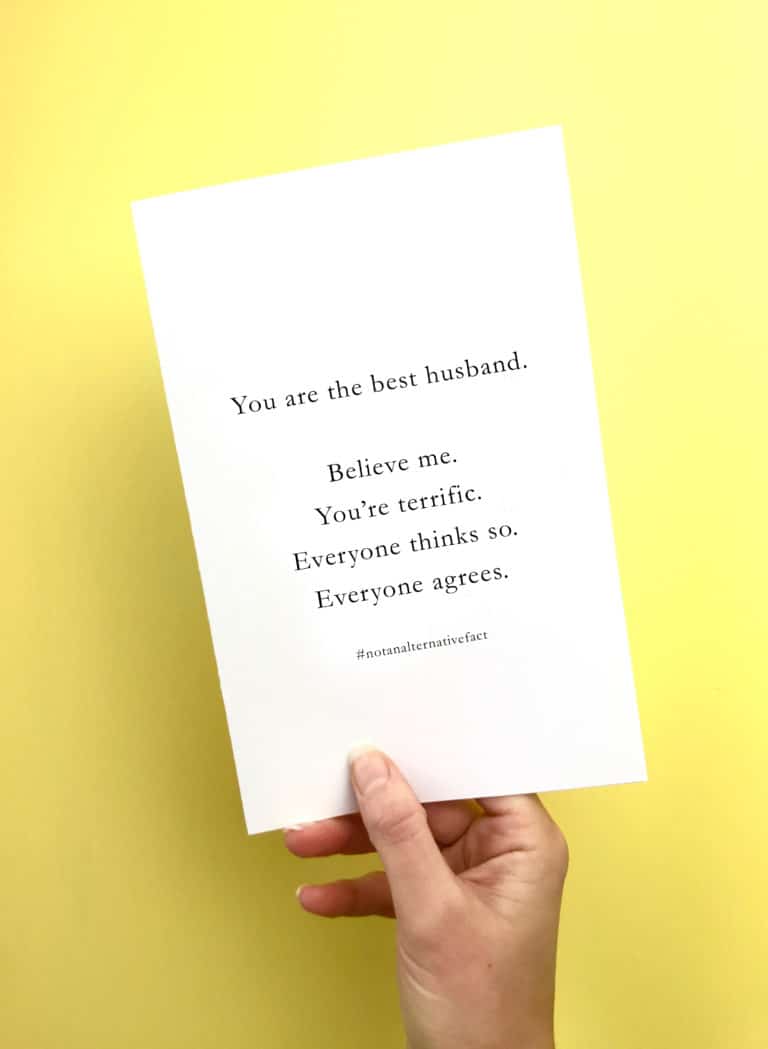 You are the best husband.
Believe me.
You’re terrific.
Everyone thinks so.
Everyone agrees.
#notanalternativefact